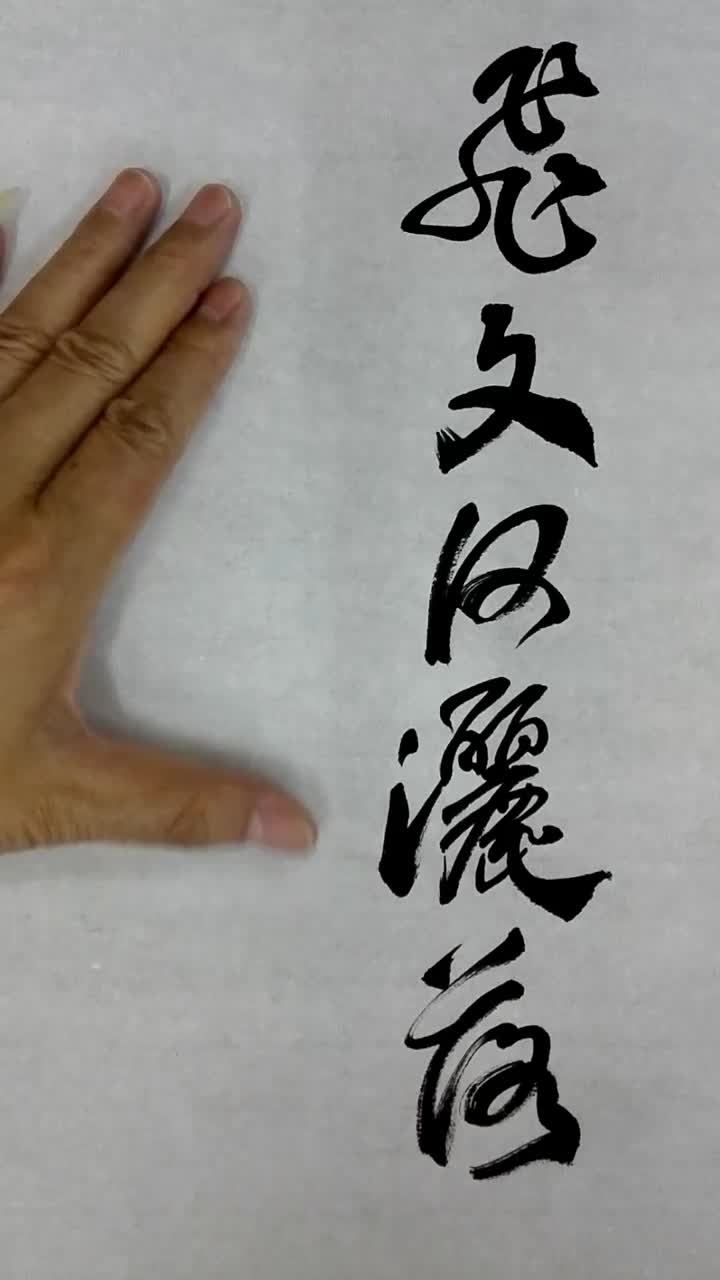 飛文何灑落